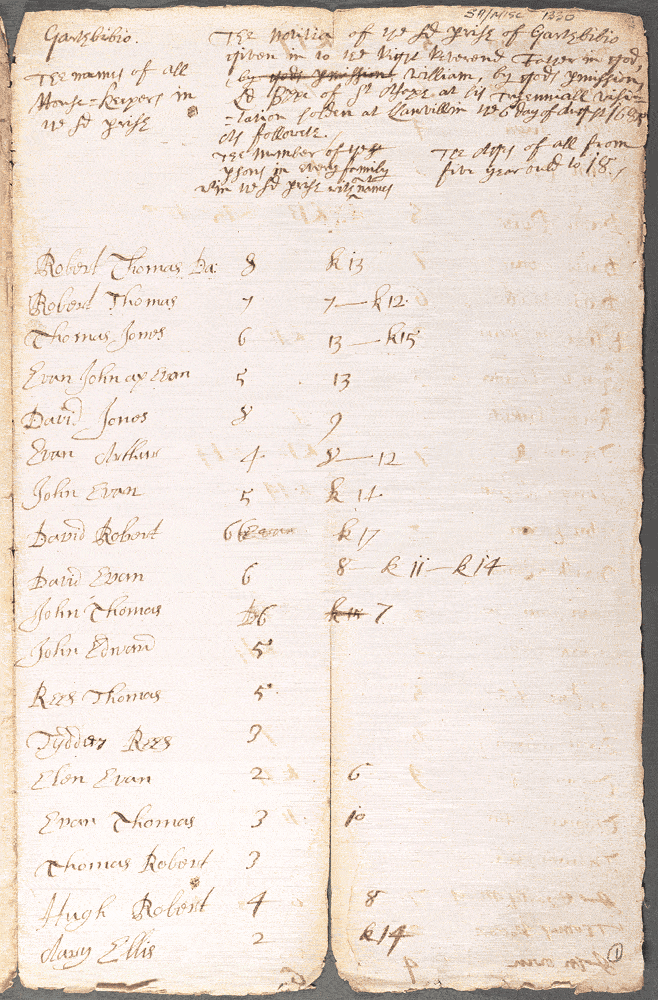 SA/MISC 1330
Garthbibio.
The names of all
House=keepers in
ye sd prish
The Notitia of ye sd prish of Garthbibio
given in to ye Right Reverend Father in god,
by gods pmission William, by gods pmission
Ld Bpp of St Asaph at his Triennial Visi-
-tation holden at Llanvillin ye 6 day of August
as follows.
The Number of
psons in every family
wthin ye sd prish with names
The Ages of all from
five year ould to 18.
Robert Thomas Da: 8 k 13
Robert Thomas 7 7—k12
Thomas Jones 6 13—k15
Evan John ap Evan 5 13
David Jones 8 9
Evan Arthur 4 8—12
John Evan 5 k 14
David Robert 6 k 17
David Evan 6 8—k 11—k14
John Thomas 6 7
John Edward 5
Rees Thomas 5
Tydder Rees 3
Elen Evan 2 6
Evan Thomas 3 10
Thomas Robert 3
Hugh Robert 4 8
Mary Ellis 2 k14
1